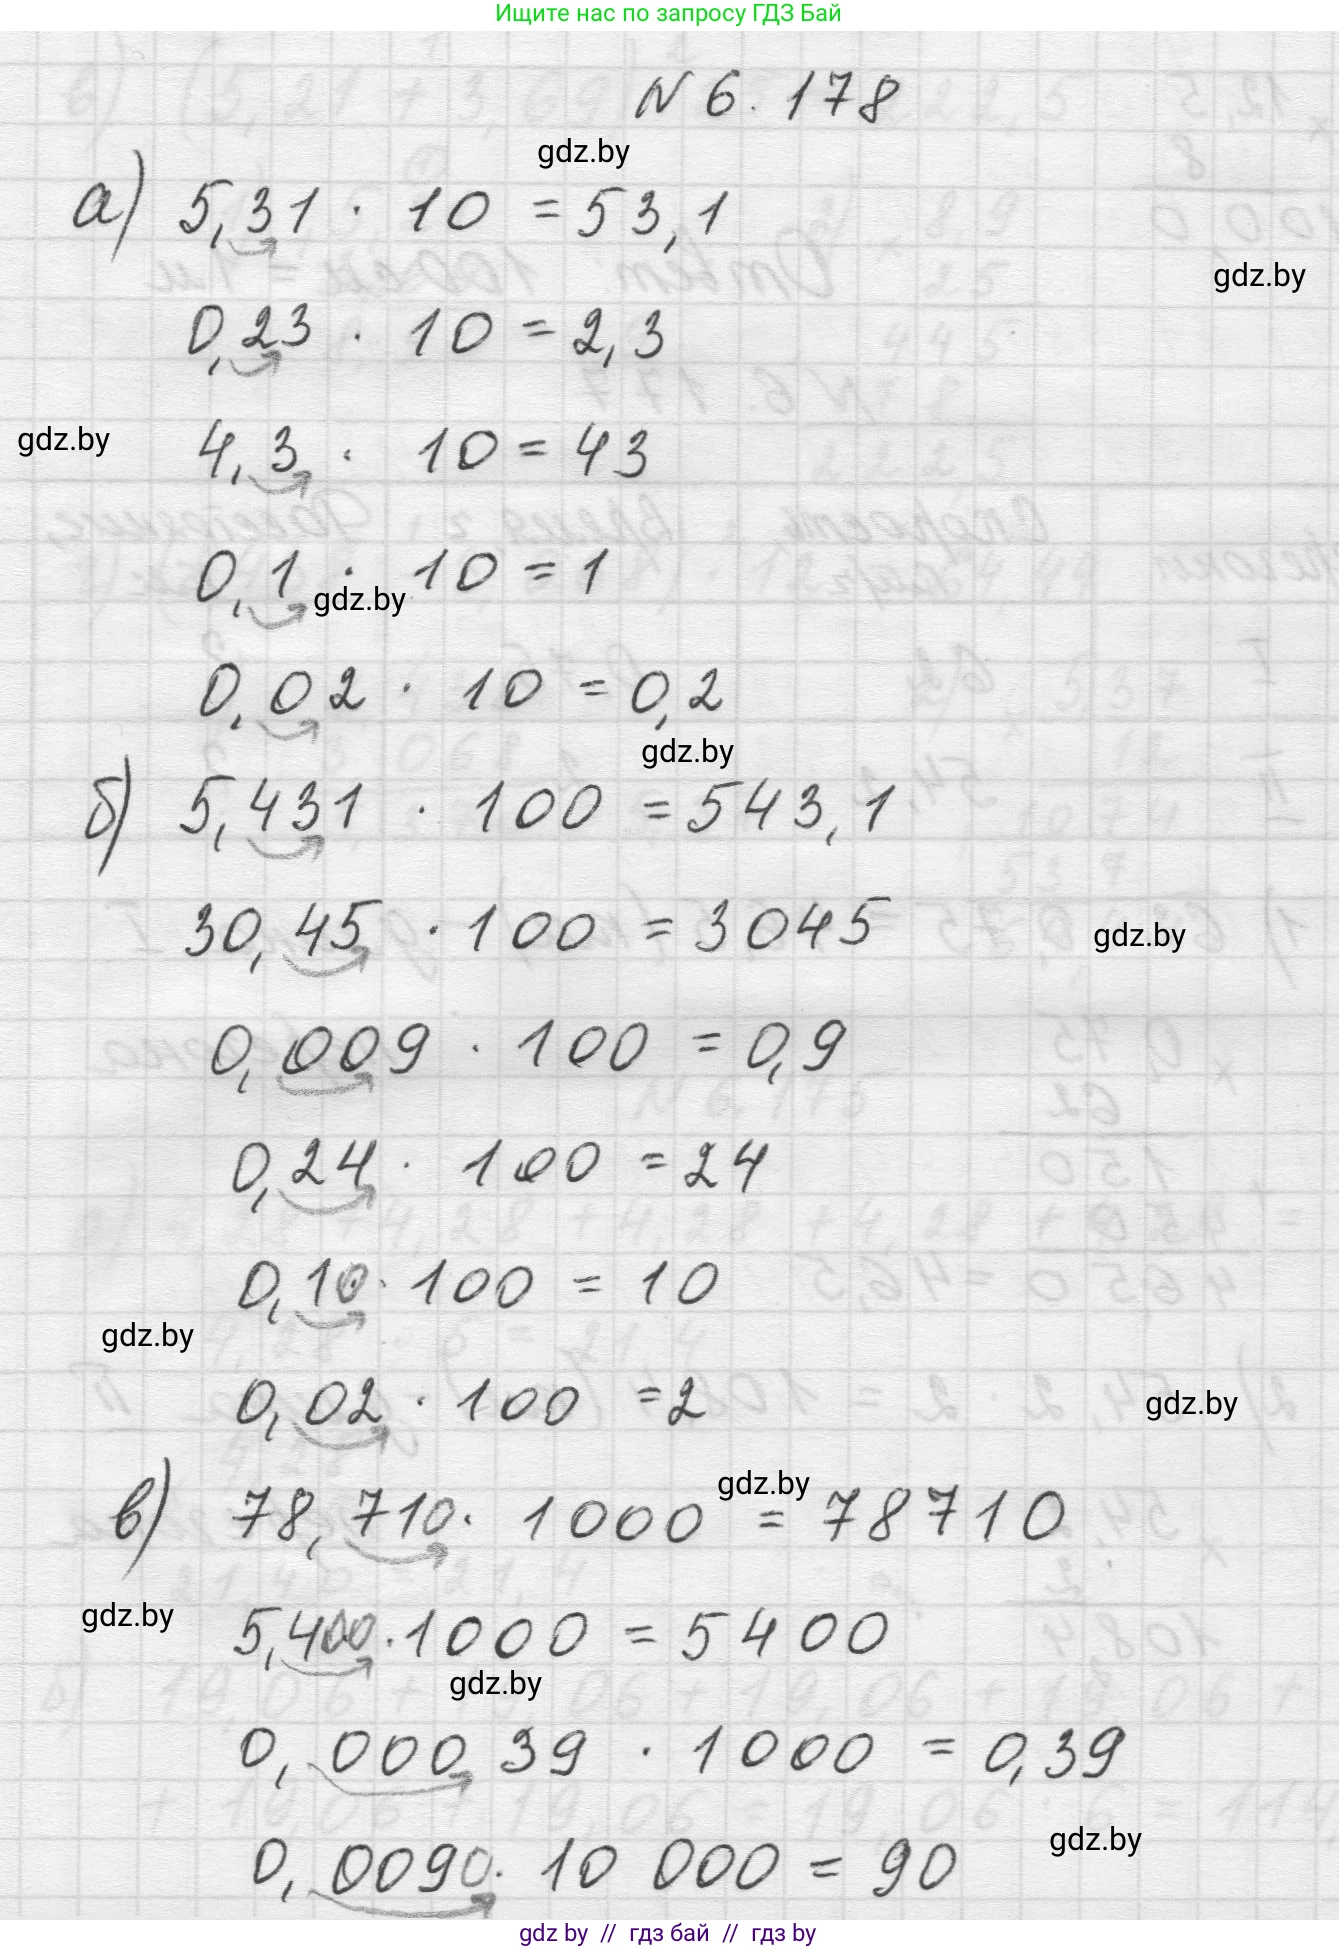 Ищите нас по запросу ГДЗ Бай
N 6.178
gdz.by
а) 5,31 · 10 = 53,1
gdz.by
0,23 · 10 = 2,3
gdz.by
4,3 · 10 = 43
0,1 · 10 = 1
gdz.by
0,02 · 10 = 0,2
gdz.by
б) 5,431 · 100 = 543,1
30,45 · 100 = 3045
gdz.by
0,009 · 100 = 0,9
0,24 · 100 = 24
0,10 · 100 = 10
gdz.by
0,02 · 100 = 2
gdz.by
gdz.by
в) 78,710 · 1000 = 78710
gdz.by
5,400 · 1000 = 5400
gdz.by
0,00039 · 1000 = 0,39
gdz.by
0,0090 · 10 000 = 90
gdz by // гдз бай // гдз by